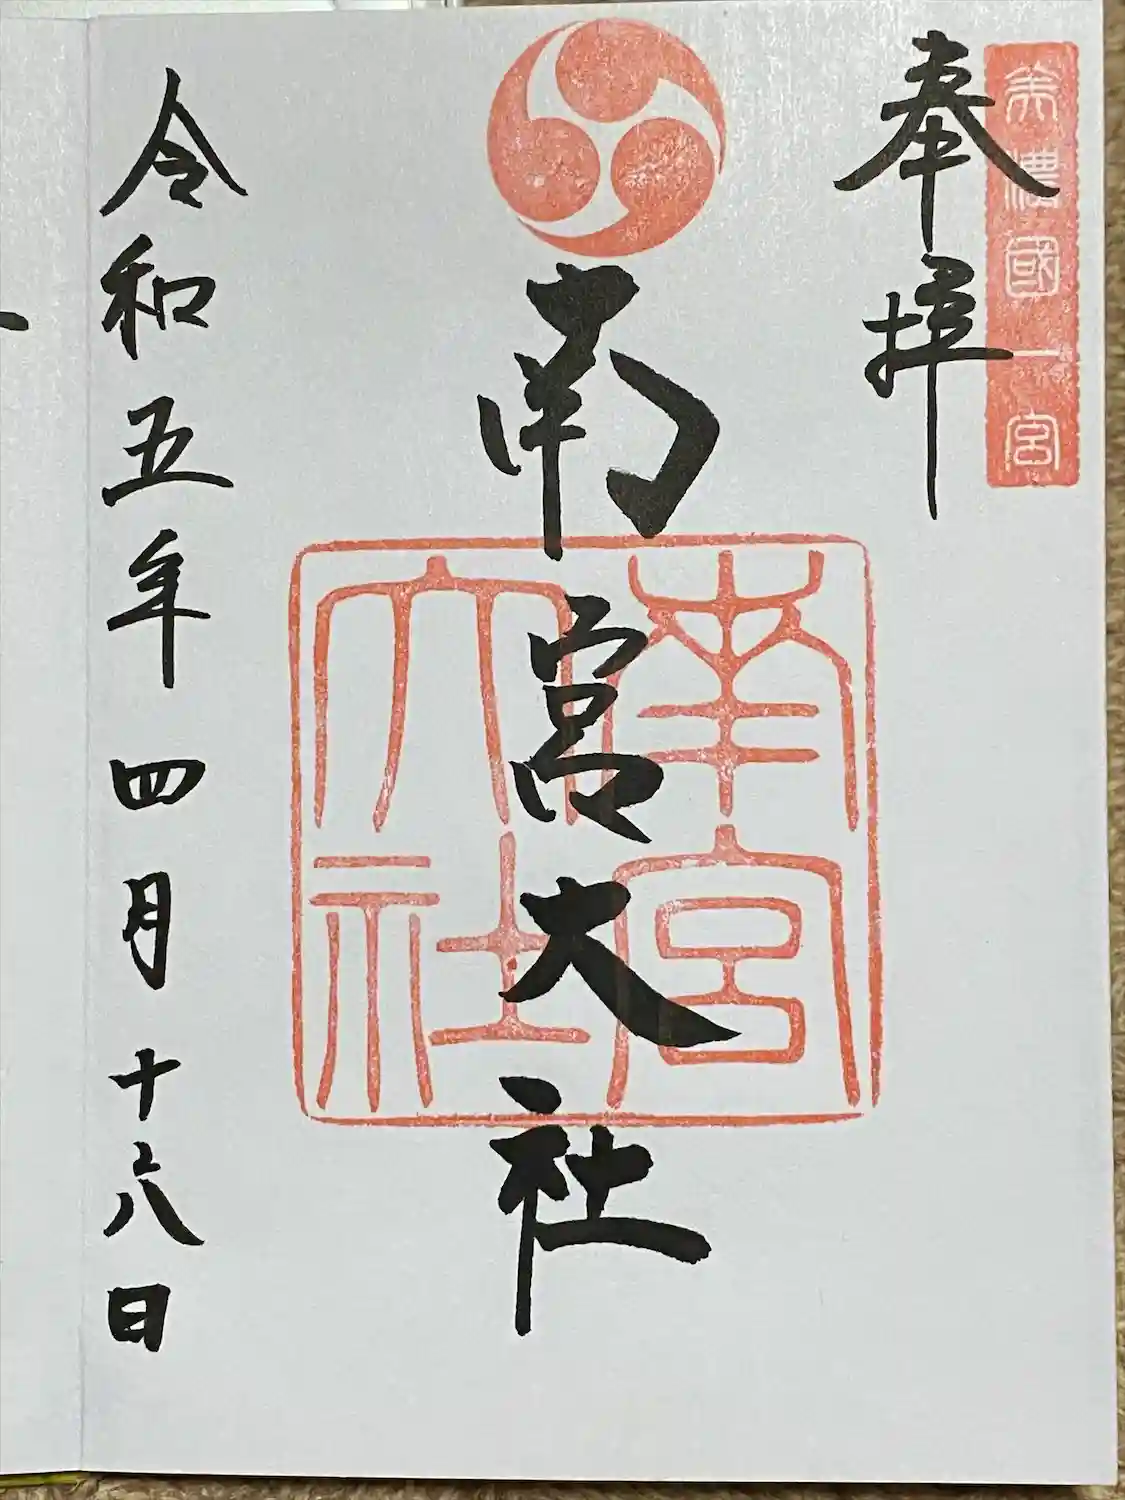 美濃國一宮
奉拝
南宮大社
南宮大社
令和五年四月十八日